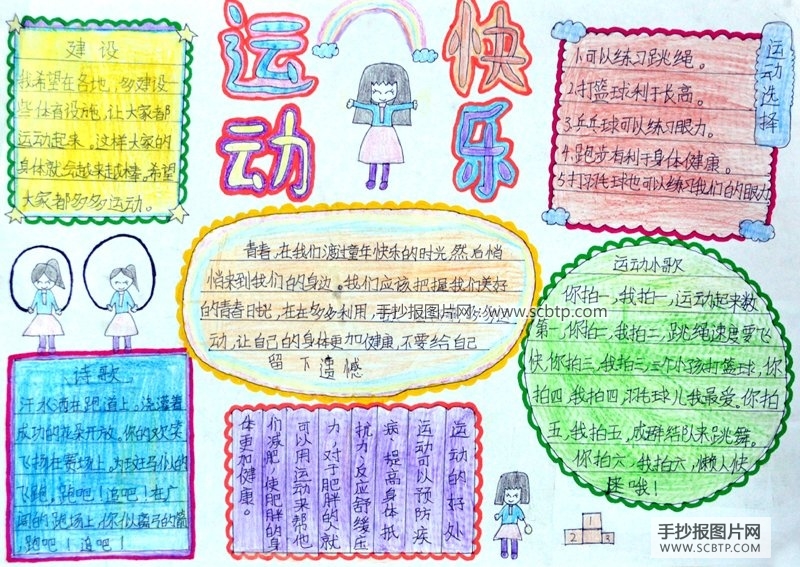 运动
快乐
建设
我希望在各地,多建设
一些体育设施,让大家都
运动起来。这样大家的
身体就会越来越棒。希望
大家都多多运动。
运动选择
1.可以练习跳绳。
2.打篮球利于长高。
3.乒乓球可以练习眼力。
4.跑步有利于身体健康。
5.打羽毛球也可以练习我们的眼力
青春,在我们渡过童年快乐的时光,然后悄
悄来到我们的身边。我们应该把握我们美好
的青春日记,在在多多利用,
手抄报图片网 www.scbtp.com
动,让自己的身体更加健康,不要给自己
留下遗憾
运动小歌
你拍一,我拍一,运动起来数
第一,你拍二,我拍二,跳绳速度要飞
快,你拍三,我拍三,三个小孩打篮球,你
拍四,我拍四,羽毛球儿我最爱。你拍
五,我拍五,成群结队来跳舞。
你拍六,我拍六,懒人快
哦!
诗歌
汗水洒在跑道上,浇灌着
成功的花朵开放。你的欢笑
飞扬在赛场上。
飞跑,跑吧!追吧!在广
阔的跑场上,你似离弓的箭
,跑吧!追吧!
运动的好处
运动可以预防疾
病,提高身体抵
抗力,反应舒缓压
力,对于肥胖的就
可以用运动来帮他
们减肥,使肥胖的身
体更加健康。
1
2
3
手抄报图片网
WWW.SCBTP.COM